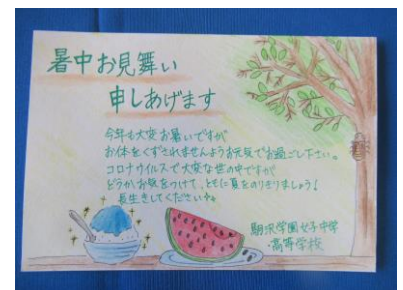 暑中お見舞い
申しあげます
今年も大変お暑いですが
お体をくずされませんようお元気でお過ごし下さい。
コロナウイルスで大変な世の中ですが
どうかお気をつけて、ともに夏をのりきりましょう!
長生きしてください
駒沢学園女子中学
・高等学校